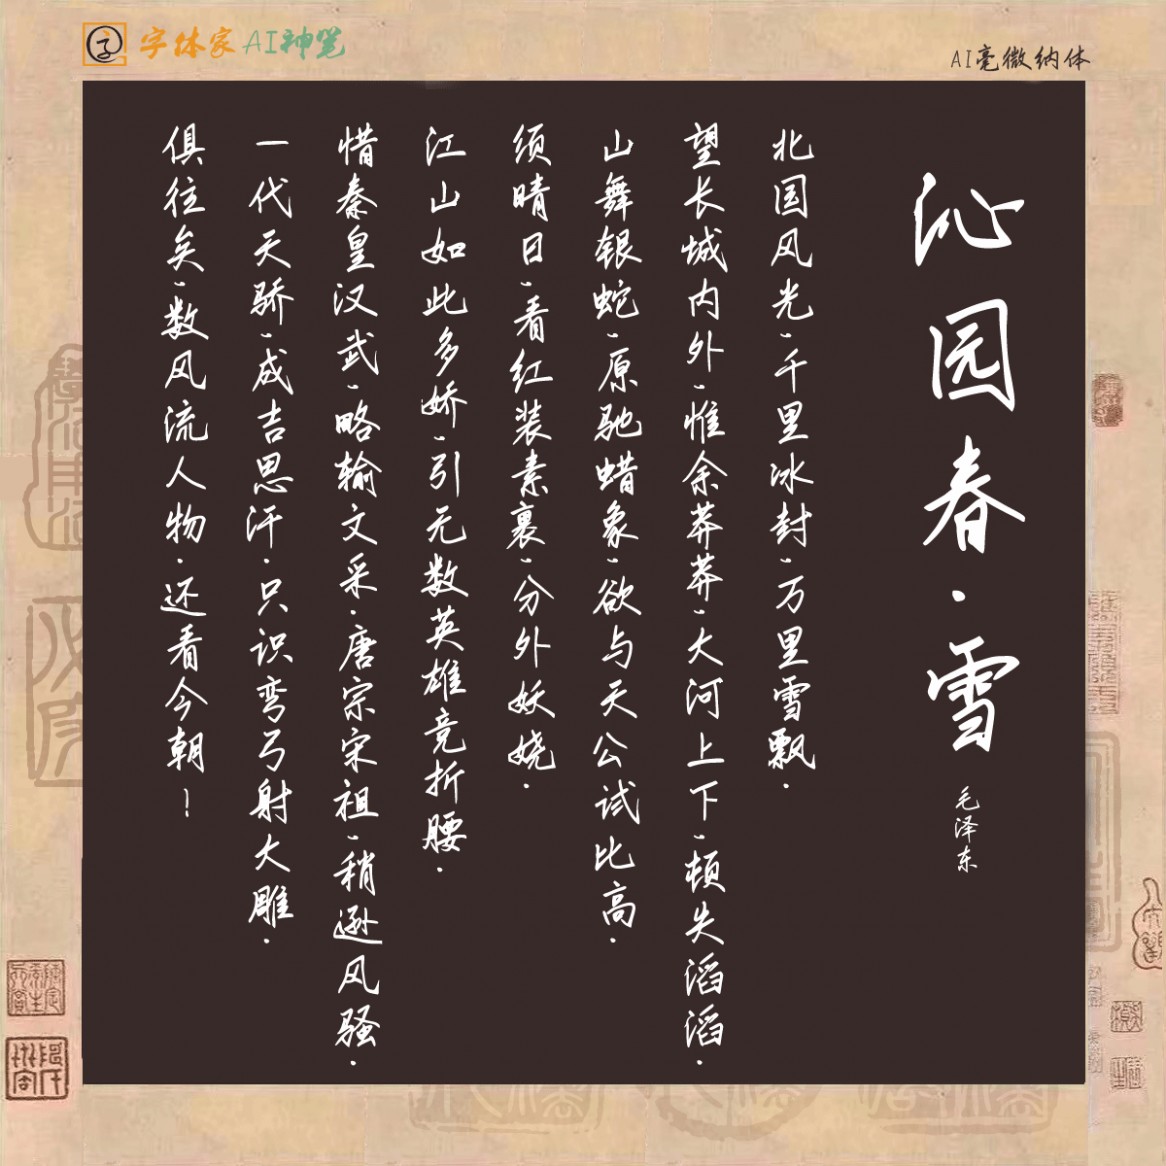 字体家AI神笔
AI毫微纳体
沁园春·雪
毛泽东
北国风光、千里冰封、万里雪飘.
望长城内外、惟余莽莽、大河上下、顿失滔滔.
山舞银蛇、原驰蜡象、欲与天公试比高.
须晴日、看红装素裹、分外妖娆.
江山如此多娇、引无数英雄竞折腰.
惜秦皇汉武、略输文采.唐宗宋祖、稍逊风骚.
一代天骄、成吉思汗.只识弯弓射大雕.
俱往矣、数风流人物.还看今朝！